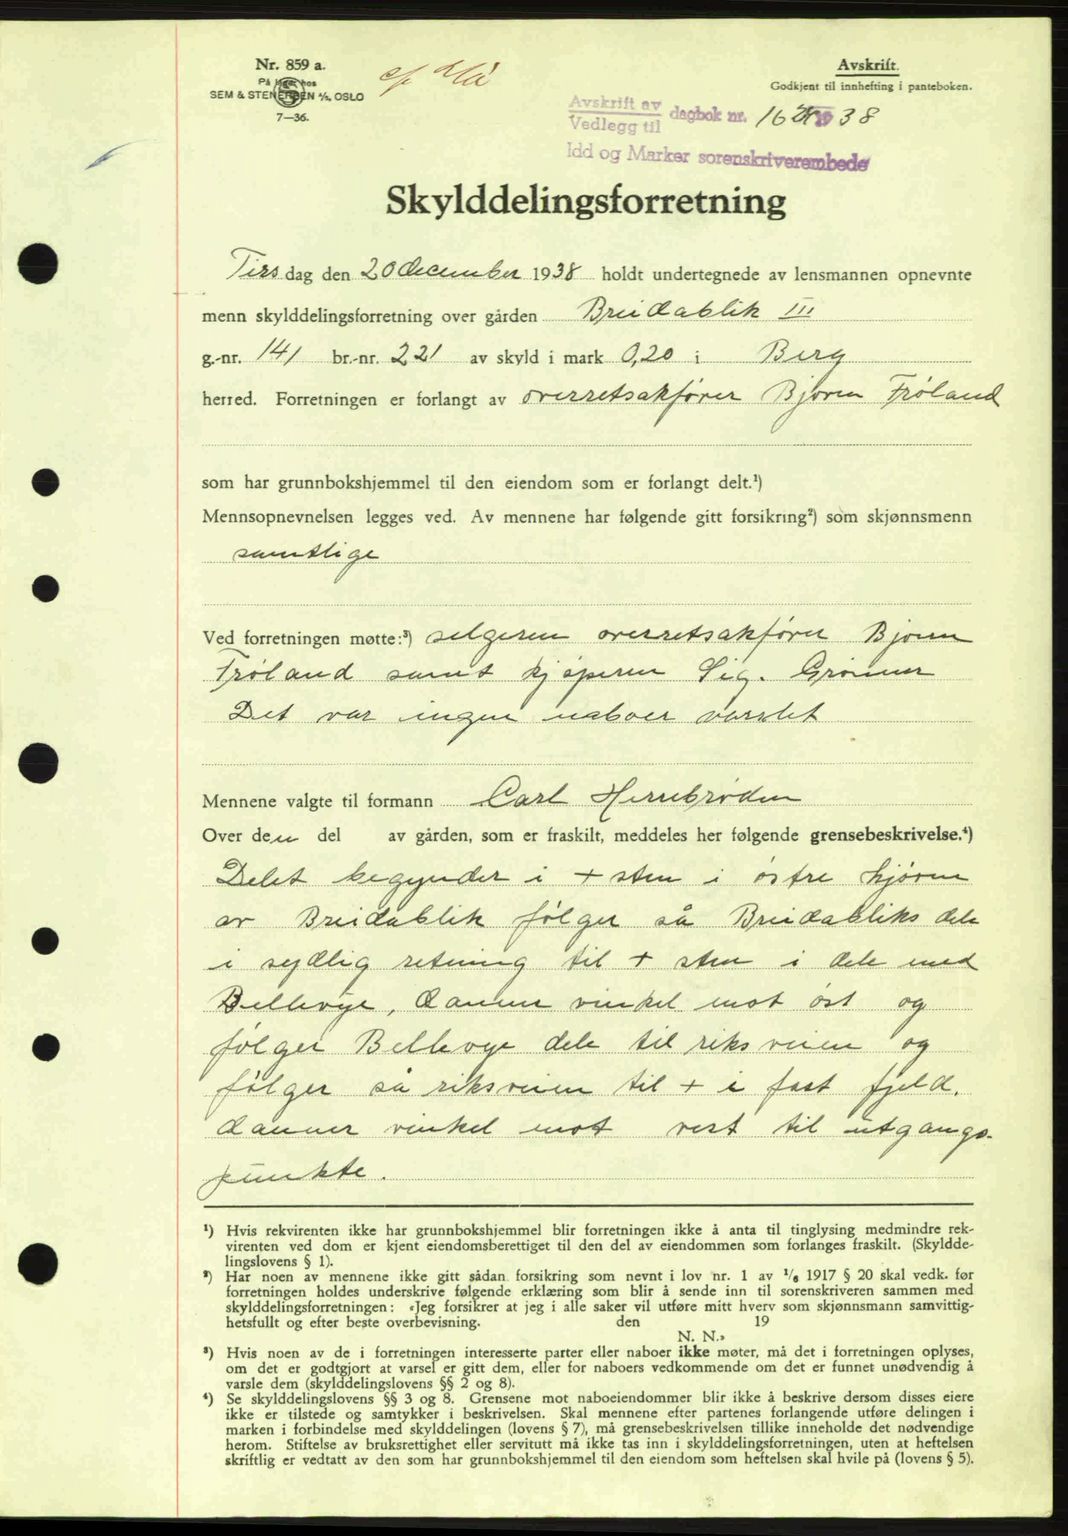 Nr. 859 a.
På lager hos
SEM & STENERSEN A/S, OSLO
7—36.
Avskrift.
Godkjent til innhefting i panteboken.
Avskrift av
Vedlegg til dagbok nr. 1938
Idd og Marker sorenskriverembede
Skylddelingsforretning
Tirsdag den 20 december 1938 holdt undertegnede av lensmannen opnevnte
menn skylddelingsforretning over gården Breidablik III
g.-nr. 141 br.-nr. 221 av skyld i mark 0,20 i Berg
herred. Forretningen er forlangt av overretsakfører Bjørn Frøland
som har grunnbokshjemmel til den eiendom som er forlangt delt.¹)
Mennsopnevnelsen legges ved. Av mennene har følgende gitt forsikring²) som skjønnsmenn
samtlige
Ved forretningen møtte:³) selgeren overretsakfører Bjørn
Frøland samt kjøperen Sig. Grønner
Det var ingen naboer varslet
Mennene valgte til formann Carl Herrebrøden
Over den del av gården, som er fraskilt, meddeles her følgende grensebeskrivelse.⁴)
Delet begynder i + sten i østre hjørne
av Breidablik følger så Breidabliks dele
i sydlig retning til + sten i dele med
Bellevye, danner vinkel mot øst og
følger Bellevye dele til riksveien og
følger så riksveien til + i fast fjeld.
danner vinkel mot vest til utgangs-
punkte.
¹) Hvis rekvirenten ikke har grunnbokshjemmel blir forretningen ikke å anta til tinglysing medmindre rek-
virenten ved dom er kjent eiendomsberettiget til den del av eiendommen som forlanges fraskilt. (Skyldde-
lingslovens § 1).
²) Har noen av mennene ikke gitt sådan forsikring som nevnt i lov nr. 1 av 1/6 1917 § 20 skal vedk. før
forretningen holdes underskrive følgende erklæring som blir å sende inn til sorenskriveren sammen med
skylddelingsforretningen: «Jeg forsikrer at jeg i alle saker vil utføre mitt hverv som skjønnsmann samvittig-
hetsfullt og efter beste overbevisning. den 19
N. N.»
³) Hvis noen av de i forretningen interesserte parter eller naboer ikke møter, må det i forretningen oplyses,
om det er godtgjort at varsel er gitt dem, eller for naboers vedkommende om det er funnet unødvendig å
varsle dem (skylddelingslovens §§ 2 og 8).
⁴) Se skylddelingslovens §§ 3 og 8. Grensene mot naboeiendommer blir ikke å beskrive dersom disses eiere
ikke er tilstede og samtykker i beskrivelsen. Skal mennene efter partenes forlangende utføre delingen i
marken i forbindelse med skylddelingen (lovens § 7), må grensebeskrivelsen tillike inneholde det nødvendige
herom. Stiftelse av bruksrettighet eller servitutt må ikke tas inn i skylddelingsforretningen, uten at heftelsen
skriftlig er vedtatt av den som har grunnbokshjemmel til den eiendom som heftelsen skal hvile på (lovens § 5).